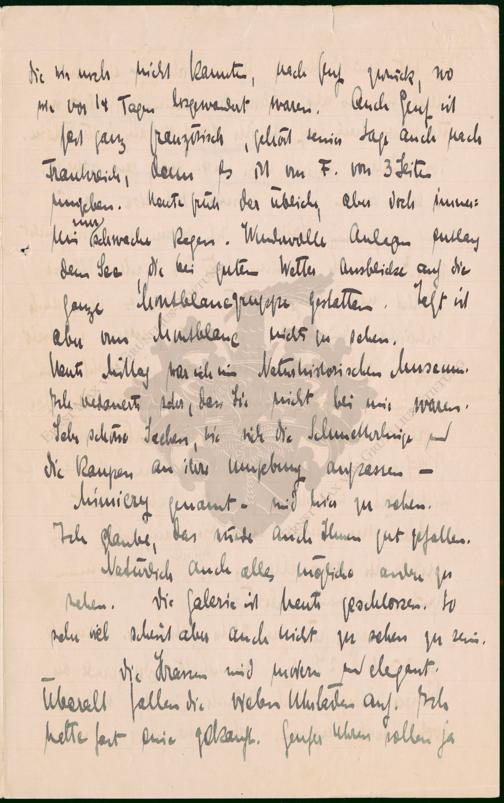 die wir noch nicht kannten, nach Genf zurück, wo
wir vor 14 Tagen losgewandert waren. Auch Genf ist
fast ganz französisch, gehört seiner Lage auch nach
Frankreich, denn es ist von F. von 3 Seiten
umgeben. Heute früh der übliche, aber doch immer-
hin nur schwache Regen. Wundervolle Anlagen entlang
dem See die bei gutem Wetter Ausblicke auf die
ganze Montblancgruppe gestatten. Jetzt ist
aber vom Montblanc nichts zu sehen.
Heute Mittag war ich im Naturhistorischen Museum.
Ich bedauerte sehr, dass Sie nicht bei mir waren.
Sehr schöne Sachen, wie sich die Schmetterlinge und
die Raupen an ihre Umgebung anpassen –
Mimicry genannt – sind hier zu sehen.
Ich glaube, das würde auch Ihnen gut gefallen.
Natürlich auch alles mögliche andere zu
sehen. Die Galerie ist heute geschlossen. So
sehr viel scheint aber auch nicht zu sehen zu sein.
Die Strassen sind modern und elegant.
Überall fallen die vielen Uhrläden auf. Ich
hätte fast eine gekauft. Genfer Uhren sollen ja